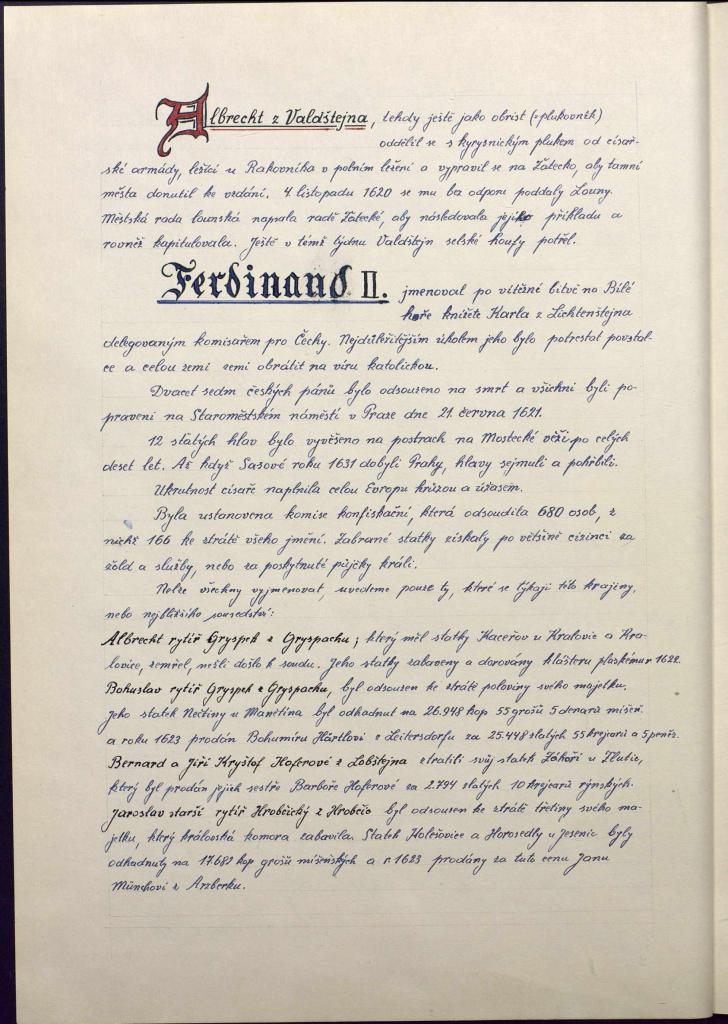 Albrecht z Valdštejna, tehdy ještě jako obrist (=plukovník)
oddělil se s kyrysnickým plukem od císař-
ské armády, ležící u Rakovníka v polním ležení a vypravil se na Žatecko, aby tamní
města donutil ke vzdání. 4. listopadu 1620 se mu bez odporu poddaly Louny.
Městská rada lounská napsala radě Žatecké, aby následovala jejího příkladu a
rovněž kapitulovala. Ještě v témž týdnu Valdštejn selské houfy potřel.
Ferdinand II. jmenoval po vítězné bitvě na Bílé
hoře knížete Karla z Lichtenštejna
delegovaným komisařem pro Čechy. Nejdůležitějším úkolem jeho bylo potrestat povstal-
ce a celou zemi zemi obrátit na víru katolickou.
Dvacet sedm českých pánů bylo odsouzeno na smrt a všichni byli po-
praveni na Staroměstském náměstí v Praze dne 21. června 1621.
12 sťatých hlav bylo vyvěšeno na postrach na Mostecké věži po celých
deset let. Až když Sasové roku 1631 dobyli Prahy, hlavy sejmuli a pohřbili.
Ukrutnost císaře naplnila celou Evropu hrůzou a úžasem.
Byla ustanovena komise konfiskační, která odsoudila 680 osob, z
nichž 166 ke ztrátě všeho jmění. Zabrané statky získaly po většině cizinci za
žold a služby, nebo za poskytnuté půjčky králi.
Nelze všechny vyjmenovat, uvedeme pouze ty, které se týkají této krajiny,
nebo nejbližšího sousedství:
Albrecht rytíř Gryspek z Gryspachu; který měl statky Kaceřov u Kralovic a Kra-
lovice, zemřel, nežli došlo k soudu. Jeho statky zabaveny a darovány klášteru plaskému r. 1622.
Bohuslav rytíř Gryspek z Gryspachu, byl odsouzen ke ztrátě poloviny svého majetku.
Jeho statek Nečtiny u Manětína byl odhadnut na 26.948 kop 55 grošů 5 denarů míšeň.
a roku 1623 prodán Bohumíru Härtlovi z Leitersdorfu za 25.448 zlatých 55 krejcarů a 5 peněz.
Bernard a Jiří Kryštof Hoferové z Lobštejna ztratili svůj statek Záhoří u Žlutic,
který byl prodán jejich sestře Barboře Hoferové za 2.794 zlatých 10 krejcarů rýnských.
Jaroslav starší rytíř Hrobčický z Hrobčic byl odsouzen ke ztrátě třetiny svého ma-
jetku, který královská komora zabavila. Statek Holešovice a Horosedly u Jesenic byly
odhadnuty na 17.682 kop grošů míšeňských a r. 1623 prodány za tuto cenu Janu
Münchovi z Arzberku.